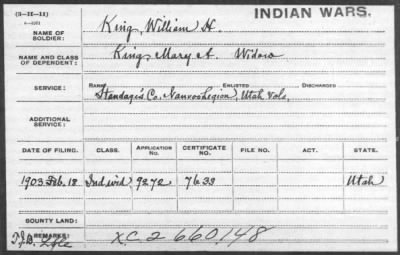 (3-II-11)
INDIAN WARS.
NAME OF SOLDIER: King, William H.
NAME AND CLASS OF DEPENDENT: King, Mary A. Widow
SERVICE: RANK ENLISTED DISCHARGED
Co. Nauvoo Legion, Utah Vols.
ADDITIONAL SERVICE:
DATE OF FILING. CLASS. APPLICATION No. CERTIFICATE No. FILE No. ACT. STATE.
1903 Feb. 18 Ind. wid. 9272 7633 Utah
COUNTY LAND:
REMARKS: XC 2 660148